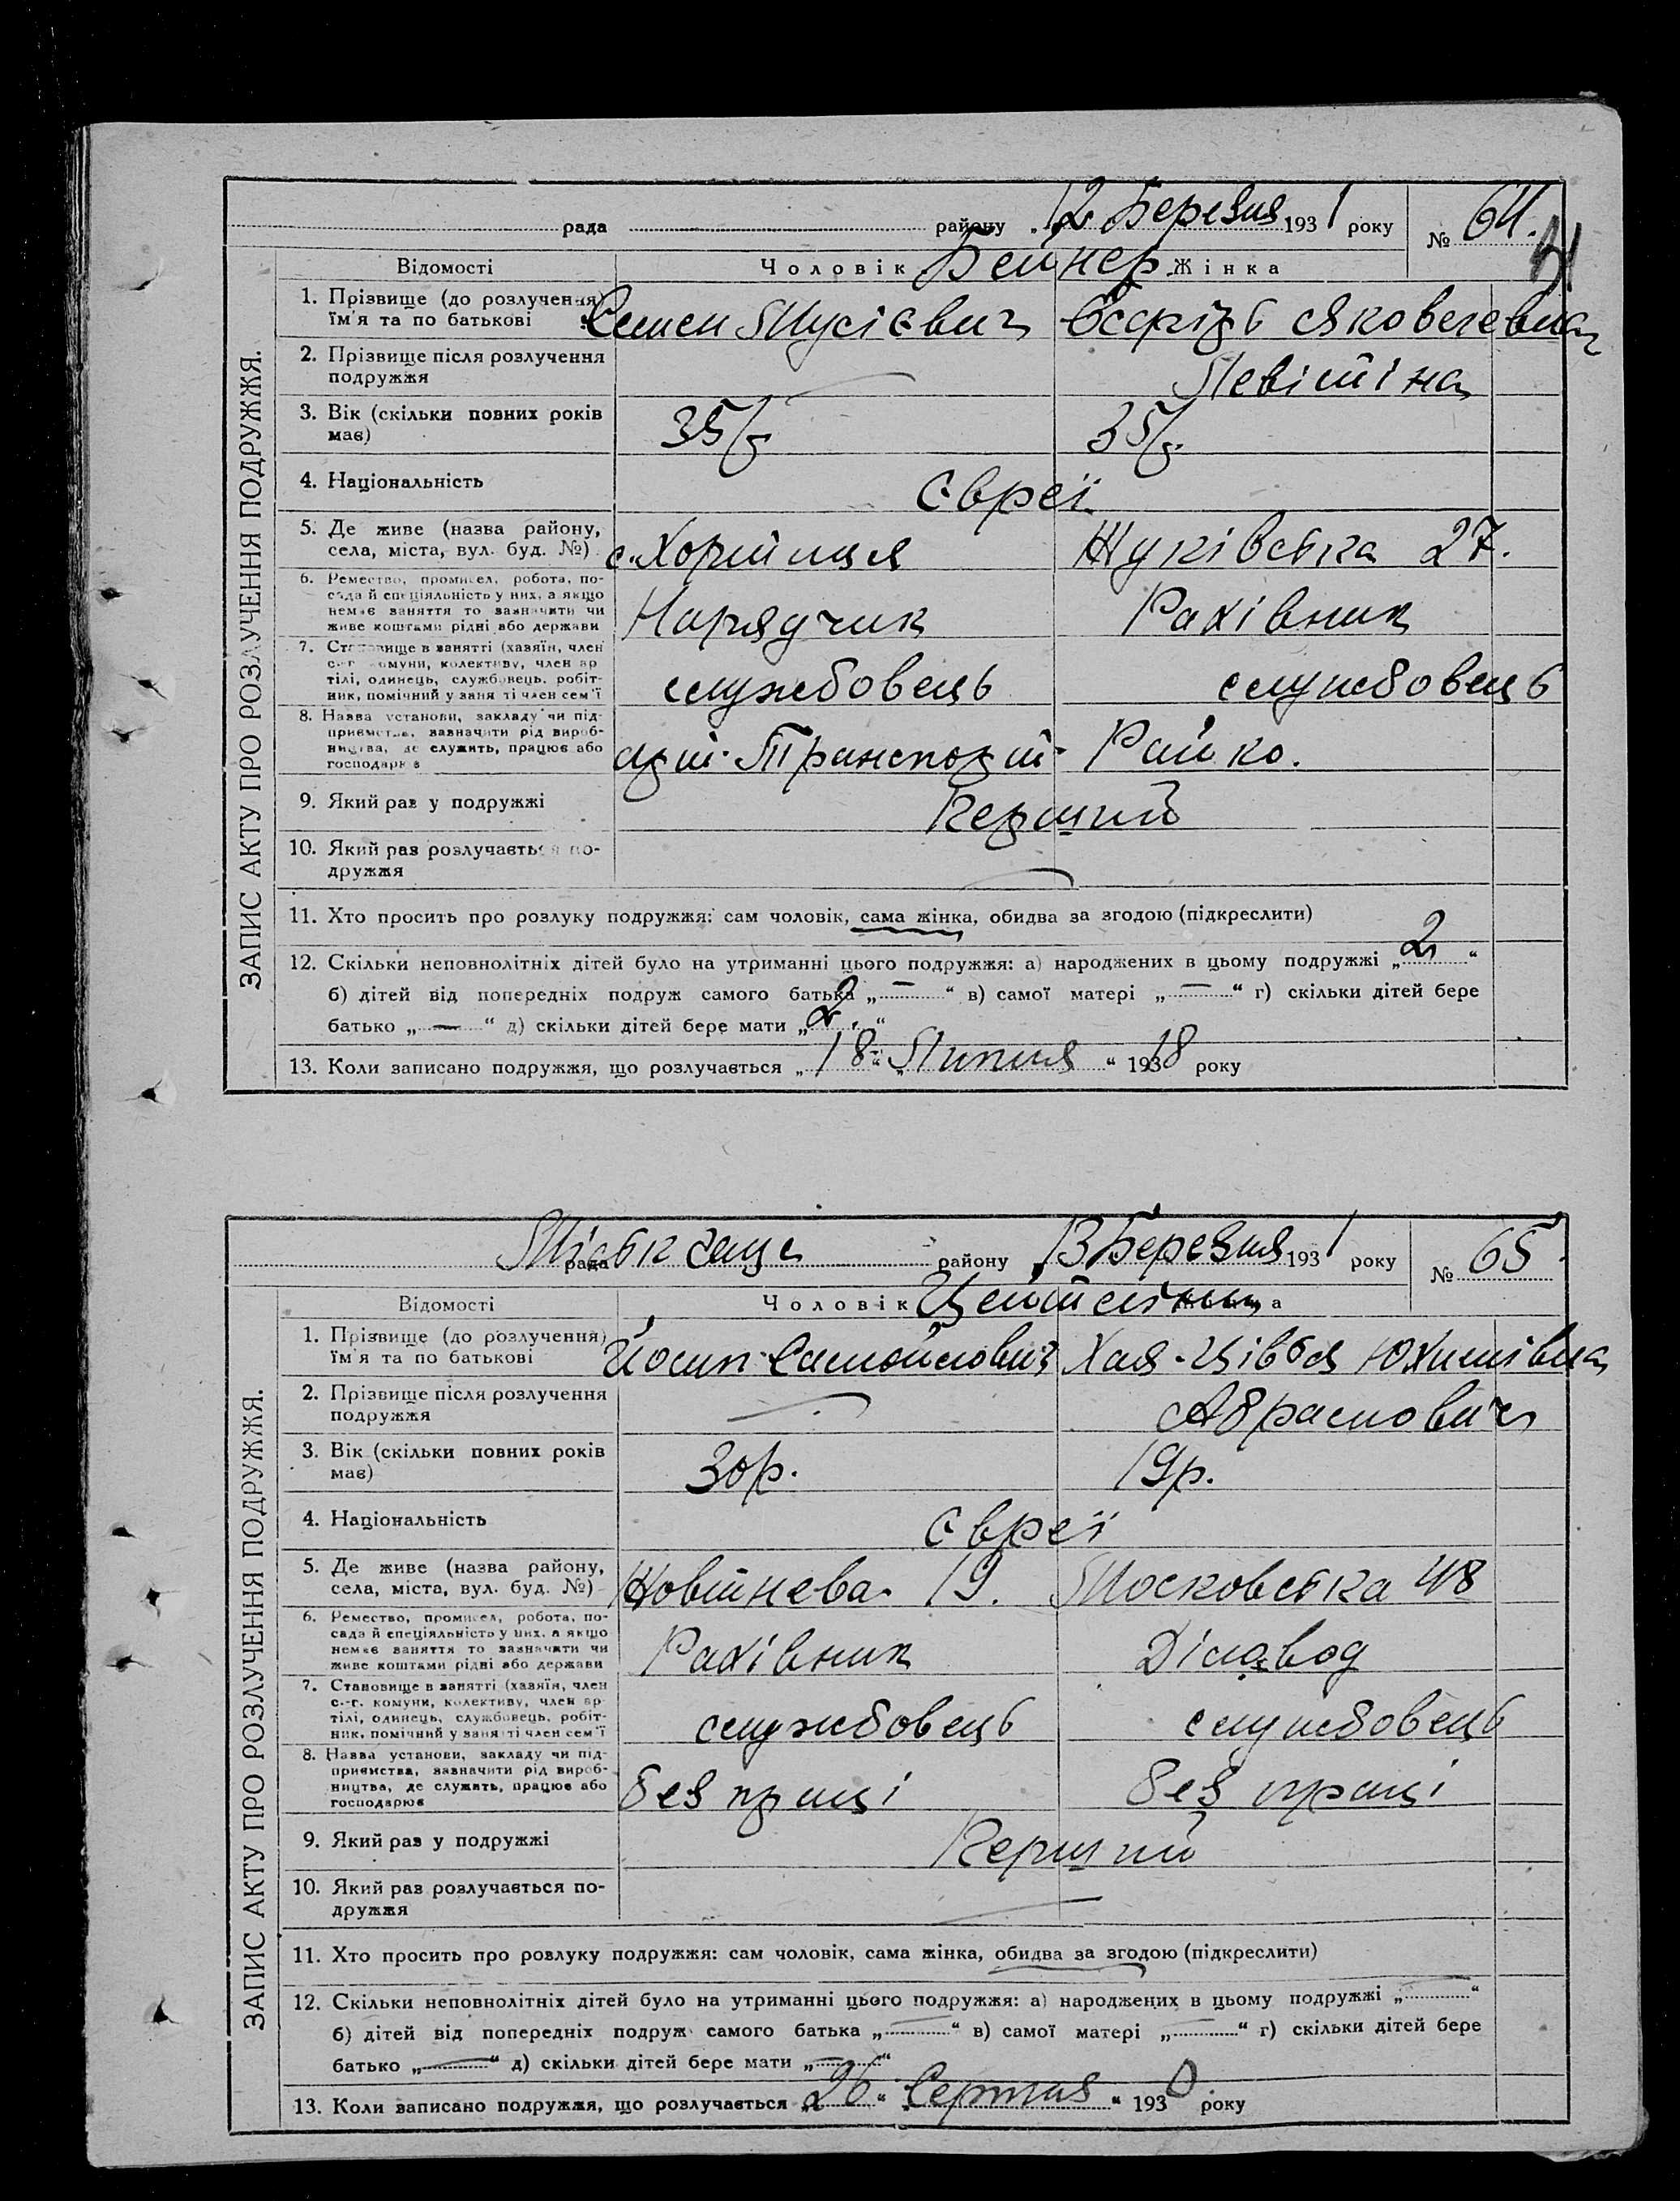 рада району 12 Березня 1931 року № 64.
Відомості Чоловік Бейнер Жінка
ЗАПИС АКТУ ПРО РОЗЛУЧЕННЯ ПОДРУЖЖЯ.
1. Прізвище (до розлучення)
їм'я та по батькові Семен Мусієвич Есфірь Яковелевна
2. Прізвище після розлучення
подружжя — Левітіна
3. Вік (скільки повних років
має) 35 р. 35 р.
4. Національність Євреї
5. Де живе (назва району,
села, міста, вул. буд. №) с. Хортиця Жуківська 27.
6. Ремество, промисел, робота, по-
сада й спеціяльність у них, а якщо
немає заняття то зазначити чи
живе коштами рідні або держави Нарядчик Рахівник
7. Становище в занятті (хазяїн, член
с.-г. комуни, колективу, член ар
тілі, одинець, службовець, робіт-
ник, помічний у занятті член сем'ї службовець службовець
8. Назва установи, закладу чи під-
приємства, зазначити рід вироб-
ництва, де служить, працює або
господарює Транспорт Райко.
9. Який раз у подружжі Перший
10. Який раз розлучається по-
дружжя —
11. Хто просить про розлуку подружжя: сам чоловік, сама жінка, обидва за згодою (підкреслити)
12. Скільки неповнолітніх дітей було на утриманні цього подружжя: а) народжених в цьому подружжі „2“
б) дітей від попередніх подруж самого батька „—“ в) самої матері „—“ г) скільки дітей бере
батько „—“ д) скільки дітей бере мати „2.“
13. Коли записано подружжя, що розлучається „18“ „Липня“ 19318 року
Міськ рада району 13 Березня 1931 року № 65.
Відомості Чоловік Цейтелін
ЗАПИС АКТУ ПРО РОЗЛУЧЕННЯ ПОДРУЖЖЯ.
1. Прізвище (до розлучення)
їм'я та по батькові Йосип Самойлович Хая-Ципвья Юхимівна
2. Прізвище після розлучення
подружжя — Абрамович
3. Вік (скільки повних років
має) 30 р. 19 р.
4. Національність Євреї
5. Де живе (назва району,
села, міста, вул. буд. №) Жовтнева 19. Московська 48
6. Ремество, промисел, робота, по-
сада й спеціяльність у них, а якщо
немає заняття то зазначити чи
живе коштами рідні або держави Рахівник Діловод
7. Становище в занятті (хазяїн, член
с.-г. комуни, колективу, член ар
тілі, одинець, службовець, робіт-
ник, помічний у занятті член сем'ї службовець службовець
8. Назва установи, закладу чи під-
приємства, зазначити рід вироб-
ництва, де служить, працює або
господарює без праці без праці
9. Який раз у подружжі Перший
10. Який раз розлучається по-
дружжя —
11. Хто просить про розлуку подружжя: сам чоловік, сама жінка, обидва за згодою (підкреслити)
12. Скільки неповнолітніх дітей було на утриманні цього подружжя: а) народжених в цьому подружжі „—“
б) дітей від попередніх подруж самого батька „—“ в) самої матері „—“ г) скільки дітей бере
батько „—“ д) скільки дітей бере мати „—“
13. Коли записано подружжя, що розлучається „26“ Серпня “ 1930 року